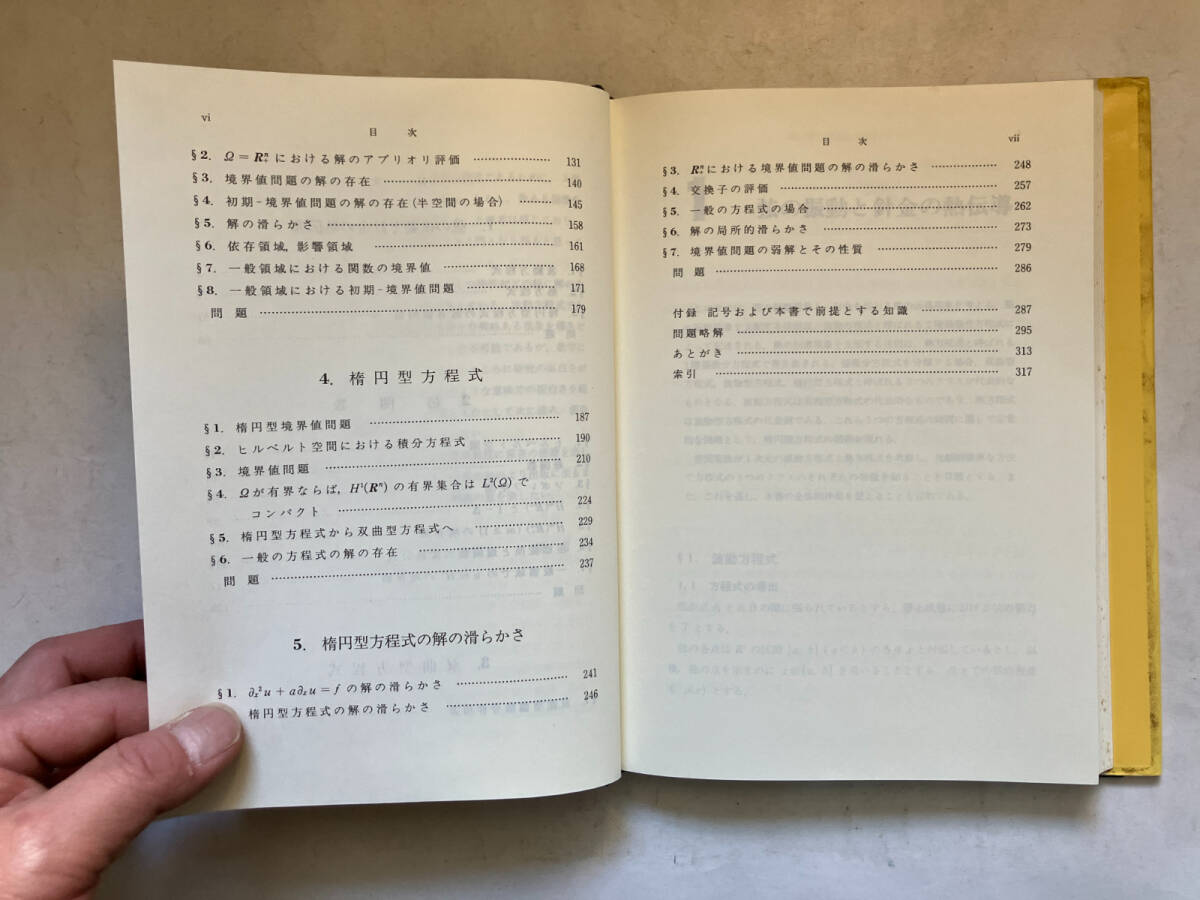 vi
目 次
§2. Ω = R₊ⁿ における解のアプリオリ評価 ……… 131
§3. 境界値問題の解の存在 ……… 140
§4. 初期-境界値問題の解の存在(半空間の場合) ……… 145
§5. 解の滑らかさ ……… 158
§6. 依存領域, 影響領域 ……… 161
§7. 一般領域における関数の境界値 ……… 168
§8. 一般領域における初期-境界値問題 ……… 171
問 題 ……… 179
4. 楕円型方程式
§1. 楕円型境界値問題 ……… 187
§2. ヒルベルト空間における積分方程式 ……… 190
§3. 境界値問題 ……… 210
§4. Ωが有界ならば, H¹(Rⁿ) の有界集合は L²(Ω) で
コンパクト ……… 224
§5. 楕円型方程式から双曲型方程式へ ……… 229
§6. 一般の方程式の解の存在 ……… 234
問 題 ……… 237
5. 楕円型方程式の解の滑らかさ
§1. ∂ₓ²u + a∂ₓu = f の解の滑らかさ ……… 241
楕円型方程式の解の滑らかさ ……… 246
目 次
vii
§3. R₊ⁿ における境界値問題の解の滑らかさ ……… 248
§4. 交換子の評価 ……… 257
§5. 一般の方程式の場合 ……… 262
§6. 解の局所的滑らかさ ……… 273
§7. 境界値問題の弱解とその性質 ……… 279
問 題 ……… 286
付録 記号および本書で前提とする知識 ……… 287
問題略解 ……… 295
あとがき ……… 313
索引 ……… 317